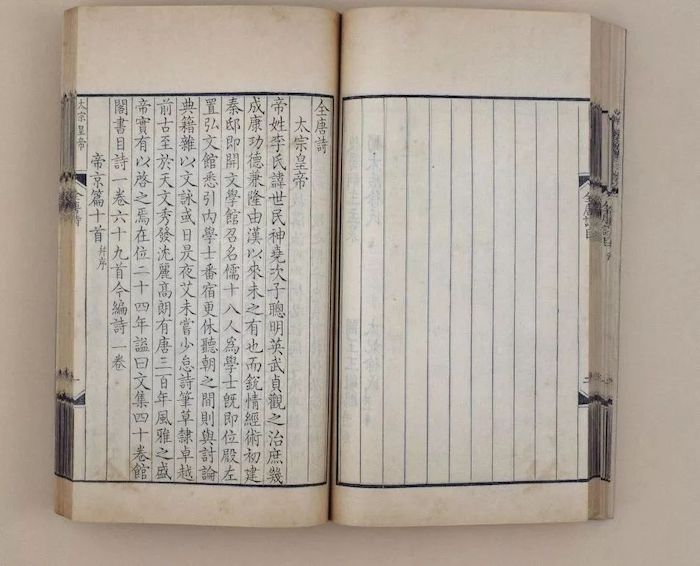 全唐詩目
全唐詩
太宗皇帝
帝姓李氏諱世民神堯次子聰明英武貞觀之治庶幾
成康功德兼隆由漢以來未之有也而銳情經術初建
秦邸即開文學館召名儒十八人爲學士旣即位殿左
置弘文館悉引內學士番宿更休聽朝之間則與討論
典籍雜以文詠或日昃夜艾未嘗少怠詩筆草隸卓越
前古至於天文秀發沈麗高朗有唐三百年風雅之盛
帝實有以啓之焉在位二十四年諡曰文集四十卷館
閣書目詩一卷六十九首今編詩一卷
帝京篇十首 并序
太宗皇帝
全唐詩
一